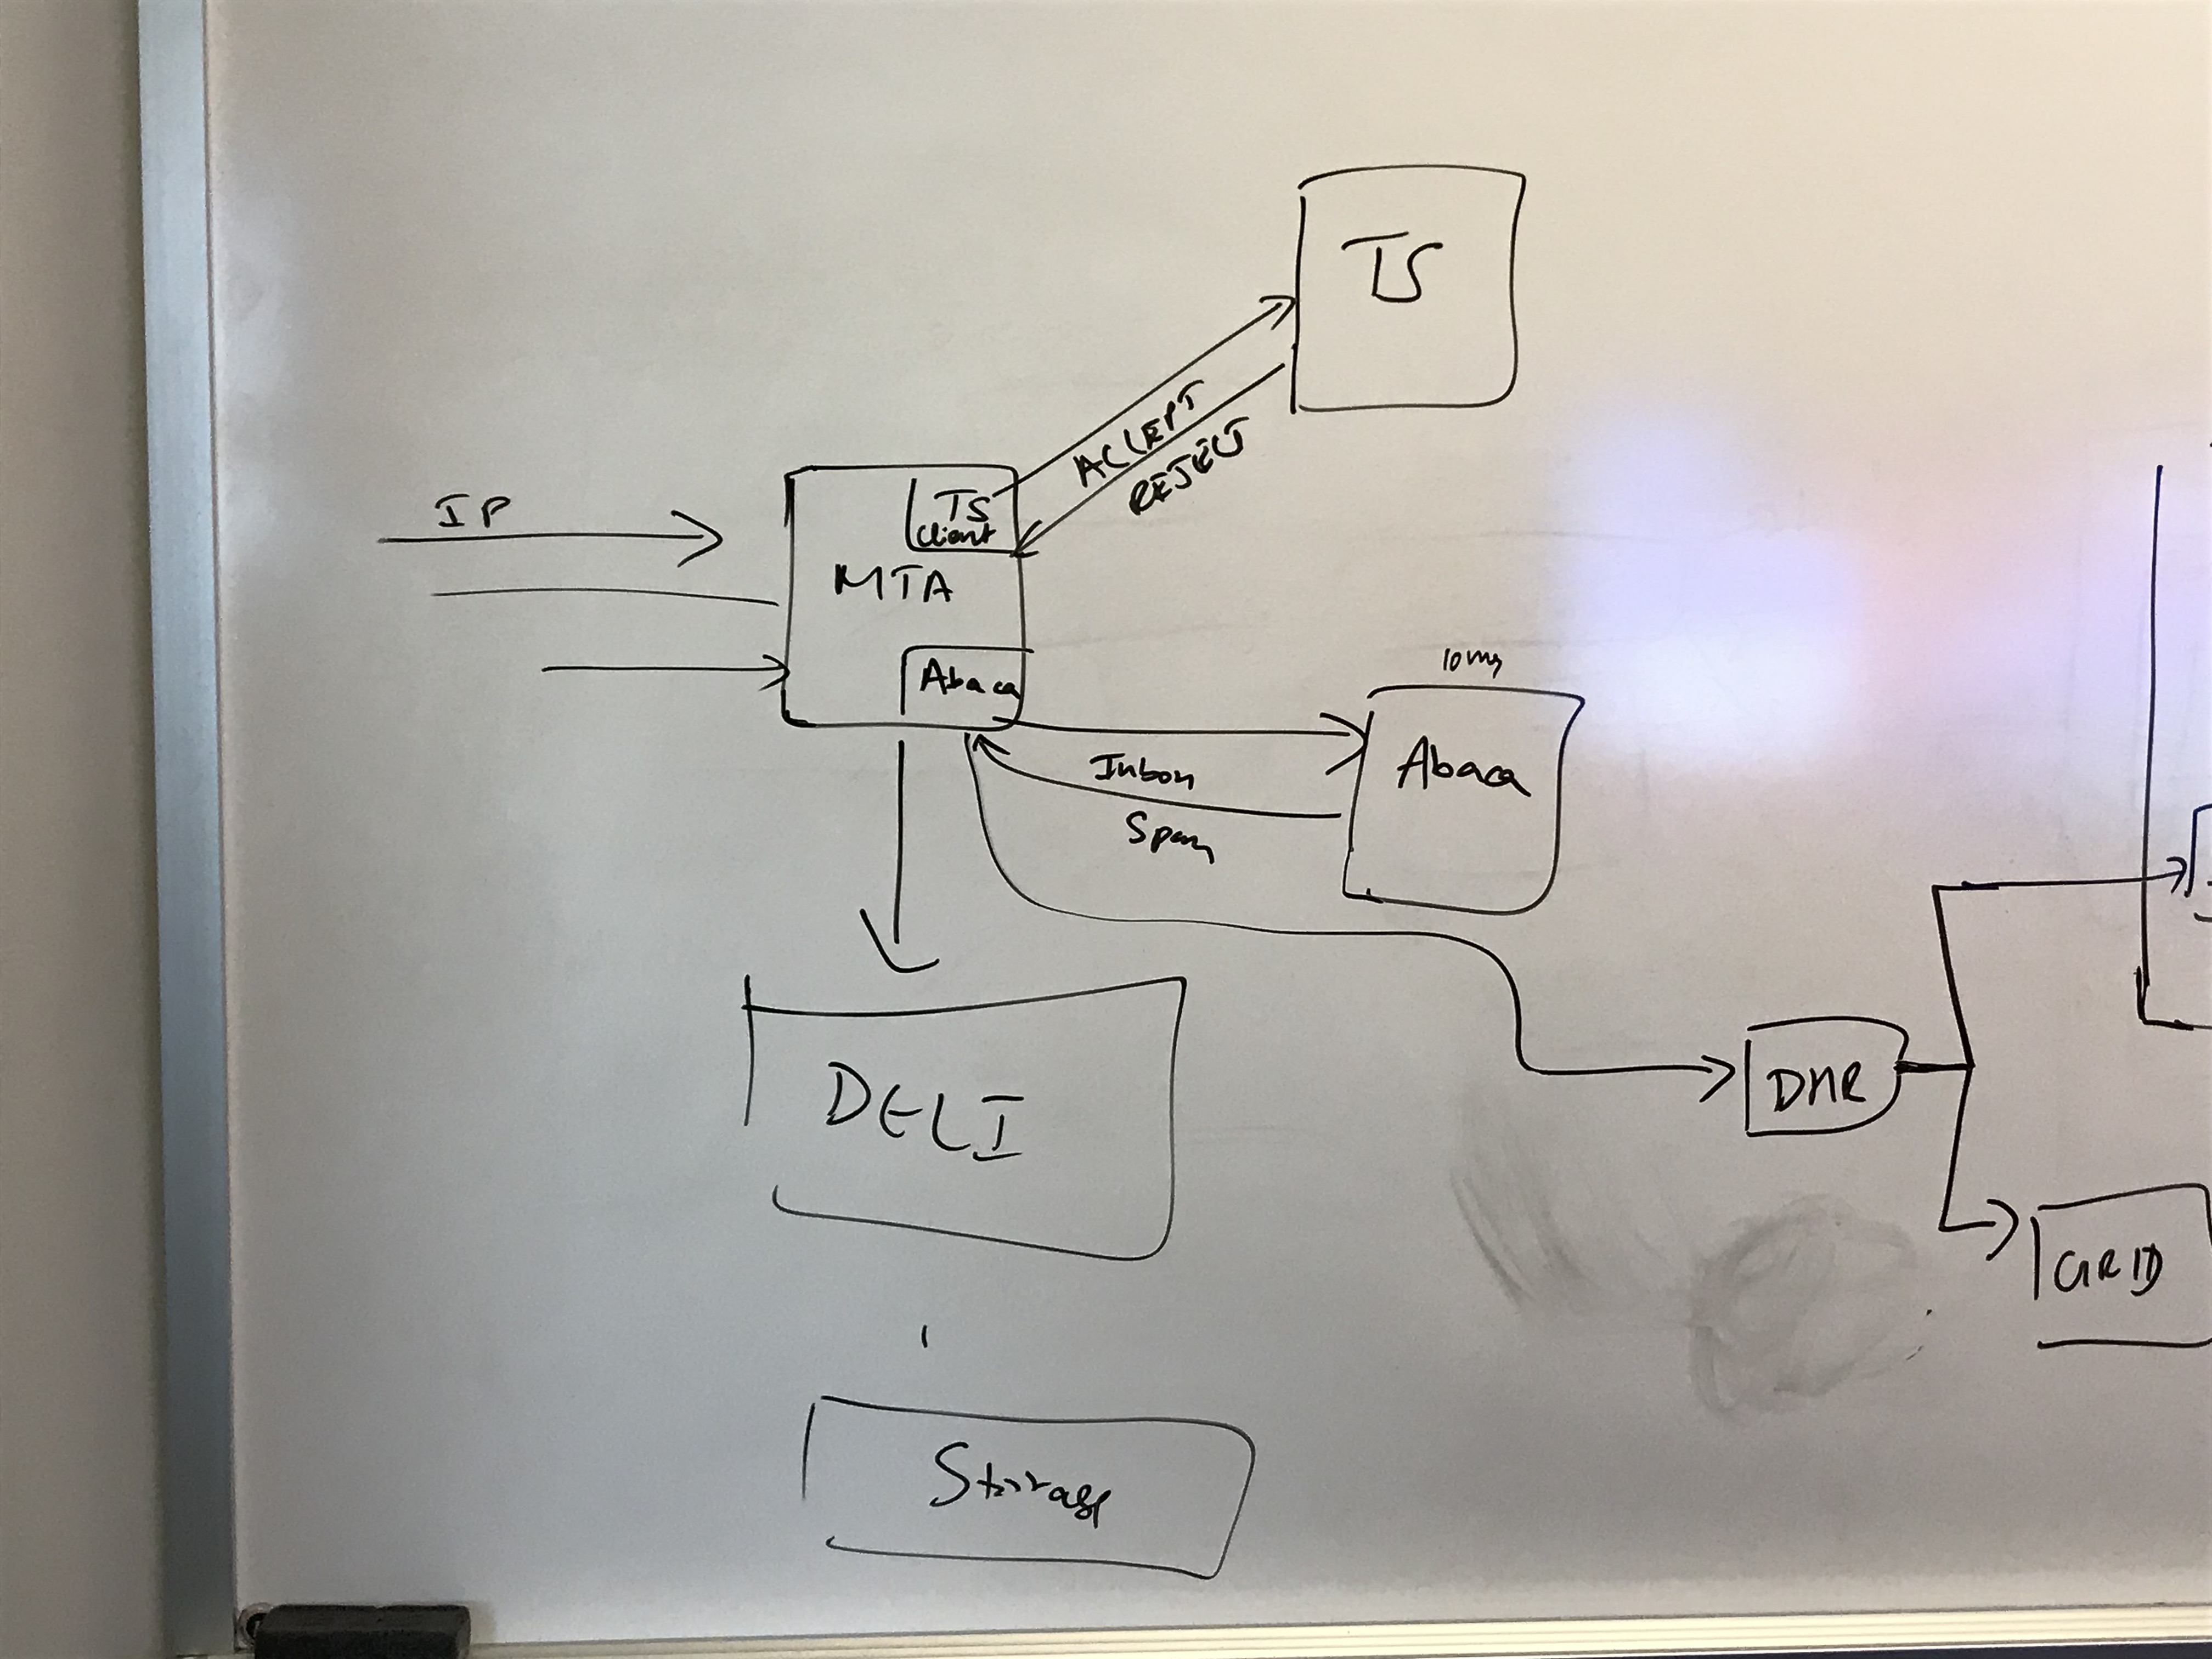 TS
ACCEPT
REJECT
IP
TS
Client
MTA
Abaca
10ms
Abaca
Inbox
Spam
DELI
DMR
GRID
Storage